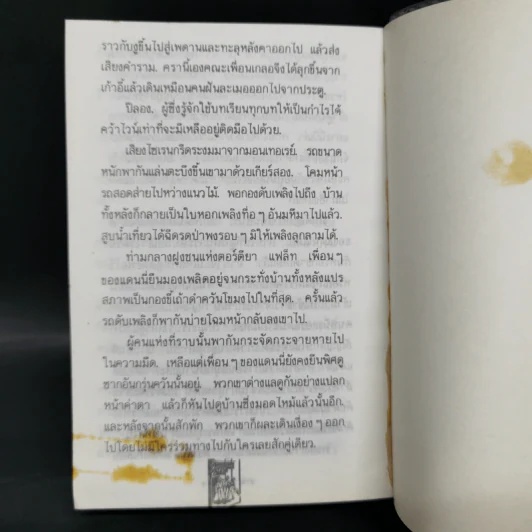 ราวกับงูขึ้นไปสู่เพดานและทะลุหลังคาออกไป แล้วส่ง
เสียงคำราม. ครานี้เองคณะเพื่อนเกลอจึงได้ลุกขึ้นจาก
เก้าอี้แล้วเดินเหมือนคนฝันละเมอออกไปจากประตู.
ปีลอง, ผู้ซึ่งรู้จักใช้บทเรียนทุกบทให้เป็นกำไรได้
คว้าไวน์เท่าที่จะมีเหลืออยู่ติดมือไปด้วย.
เสียงไซเรนกรีดระงมมาจากมอนเทอเรย์. รถขนาด
หนักพากันแล่นตะบึงขึ้นเขามาด้วยเกียร์สอง. โคมหน้า
รถสอดส่ายไปหว่างแนวไม้. พอกองดับเพลิงไปถึง บ้าน
ทั้งหลังก็กลายเป็นใบหอกเพลิงทื่อๆ อันมหึมาไปแล้ว.
สูบน้ำเที่ยวได้ฉีดรดป่าพงรอบๆ มิให้เพลิงลุกลามได้.
ท่ามกลางฝูงชนแห่งตอร์ติยา แฟล็ท เพื่อนๆ
ของแดนนี่ยืนมองเพลิดอยู่จนกระทั่งบ้านทั้งหลังแปร
สภาพเป็นกองขี้เถ้าดำควันโขมงไปในที่สุด. ครั้นแล้ว
รถดับเพลิงก็พากันบ่ายโฉมหน้ากลับลงเขาไป.
ผู้คนแห่งที่ราบนั้นพากันกระจัดกระจายหายไป
ในความมืด. เหลือแต่เพื่อนๆ ของแดนนี่ยังคงยืนพิศดู
ซากอันกรุ่นควันนั้นอยู่. พวกเขาต่างแลดูกันอย่างแปลก
หน้าค่าตา แล้วก็หันไปดูบ้านซึ่งมอดไหม้แล้วนั้นอีก.
และหลังจากนั้นสักพัก พวกเขาก็ผละเดินเรื่อยๆ ออก
ไปโดยไม่มีใครร่วมทางไปกับใครเลยสักคู่เดียว.